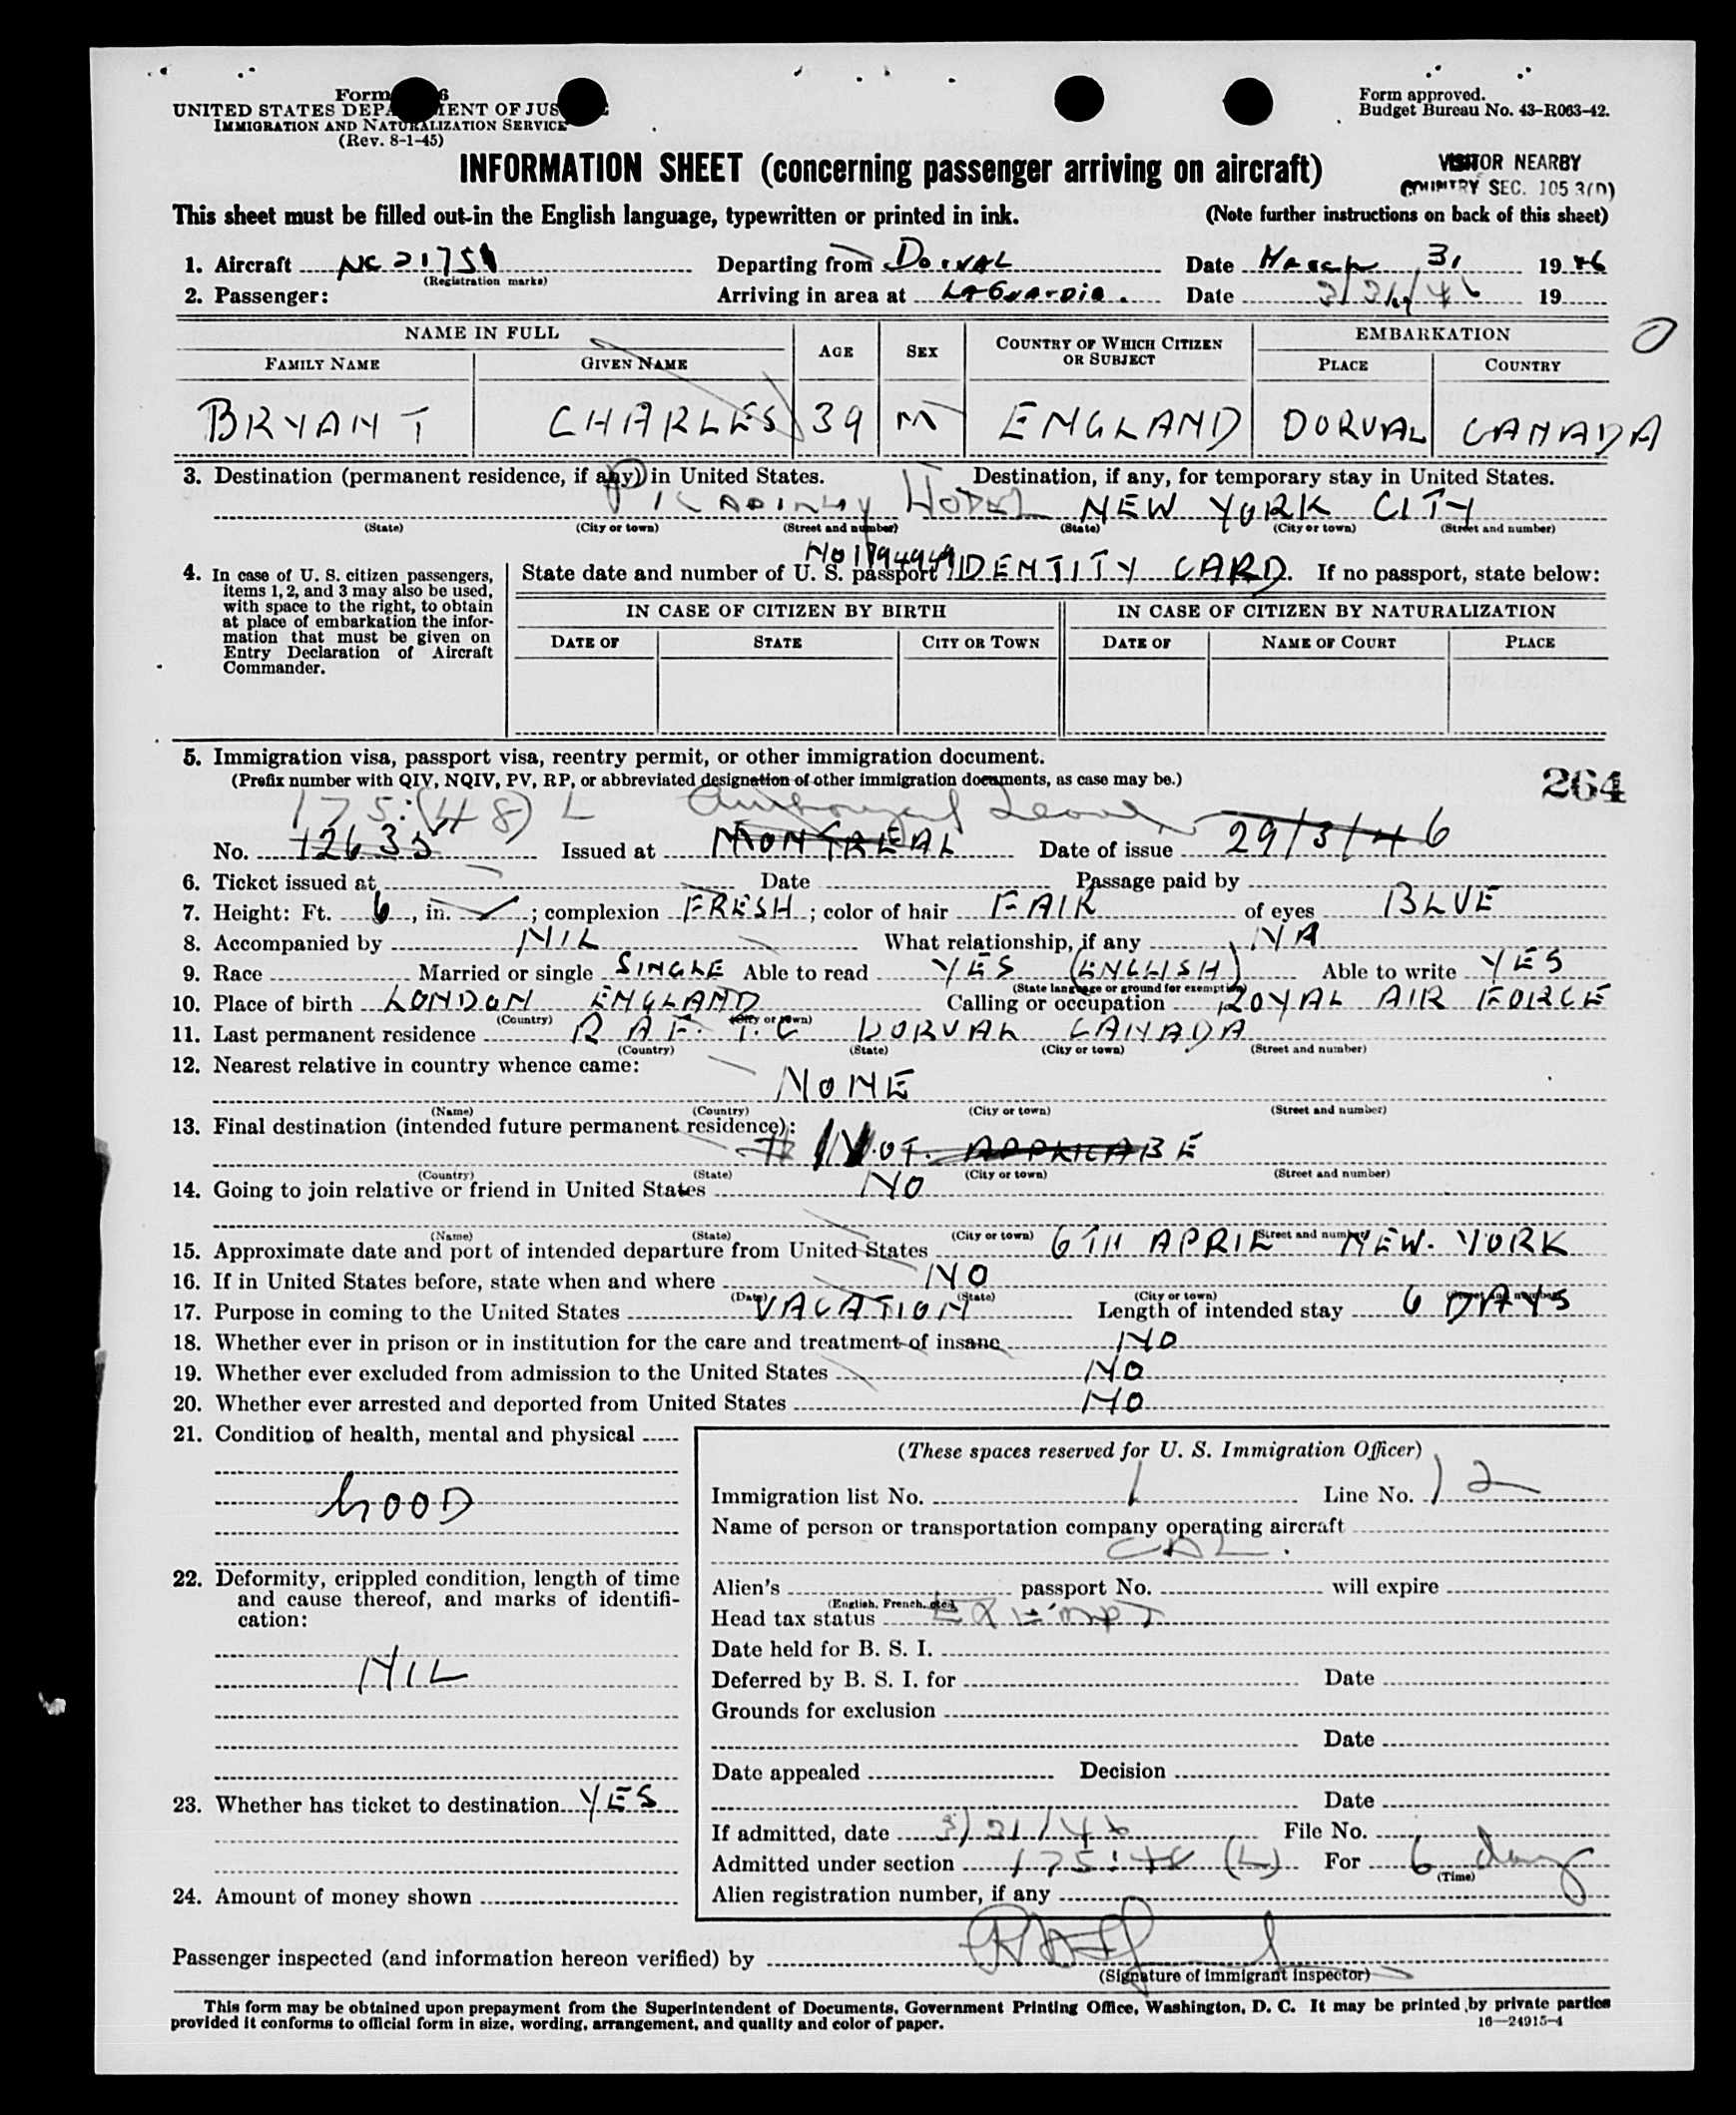 Form 6
UNITED STATES DEPA MENT OF JUS
IMMIGRATION AND NATURALIZATION SERVICE
(Rev. 8-1-45)
Form approved.
Budget Bureau No. 43-R063-42.
INFORMATION SHEET (concerning passenger arriving on aircraft)
VISITOR NEARBY
COUNTRY SEC. 105 3(D)
This sheet must be filled out in the English language, typewritten or printed in ink. (Note further instructions on back of this sheet)
1. Aircraft NC 21751 Departing from DORVAL Date March 31 1946
(Registration marks)
2. Passenger: Arriving in area at LaGuardia. Date 3/31/46 19
NAME IN FULL AGE SEX COUNTRY OF WHICH CITIZEN OR SUBJECT EMBARKATION
FAMILY NAME GIVEN NAME PLACE COUNTRY
BRYANT CHARLES 39 M ENGLAND DORVAL CANADA
3. Destination (permanent residence, if any) in United States. Destination, if any, for temporary stay in United States.
HOTEL NEW YORK CITY
(State) (City or town) (Street and number) (State) (City or town) (Street and number)
No 1794949
4. In case of U. S. citizen passengers, items 1, 2, and 3 may also be used, with space to the right, to obtain at place of embarkation the information that must be given on Entry Declaration of Aircraft Commander.
State date and number of U. S. passport IDENTITY CARD. If no passport, state below:
IN CASE OF CITIZEN BY BIRTH IN CASE OF CITIZEN BY NATURALIZATION
DATE OF STATE CITY OR TOWN DATE OF NAME OF COURT PLACE
5. Immigration visa, passport visa, reentry permit, or other immigration document.
(Prefix number with QIV, NQIV, PV, RP, or abbreviated designation of other immigration documents, as case may be.)
264
175:(48) L
No. 12635 Issued at MONTREAL Date of issue 29/3/46
6. Ticket issued at Date Passage paid by
7. Height: Ft. 6, in. ; complexion FRESH; color of hair FAIR of eyes BLUE
8. Accompanied by NIL What relationship, if any NA
9. Race Married or single SINGLE Able to read YES (ENGLISH) Able to write YES
(State language or ground for exemption)
10. Place of birth LONDON ENGLAND Calling or occupation ROYAL AIR FORCE
(Country) (City or town)
11. Last permanent residence R A F. T. C DORVAL CANADA
(Country) (State) (City or town) (Street and number)
12. Nearest relative in country whence came:
NONE
(Name) (Country) (City or town) (Street and number)
13. Final destination (intended future permanent residence):
NOT. APPLICABE
(Country) (State) (City or town) (Street and number)
14. Going to join relative or friend in United States NO
(Name) (State) (City or town) (Street and number)
15. Approximate date and port of intended departure from United States 6TH APRIL NEW. YORK
16. If in United States before, state when and where NO
(Date) (State) (City or town) (Street and number)
17. Purpose in coming to the United States VACATION Length of intended stay 6 DAYS
18. Whether ever in prison or in institution for the care and treatment of insane NO
19. Whether ever excluded from admission to the United States NO
20. Whether ever arrested and deported from United States NO
21. Condition of health, mental and physical
GOOD
22. Deformity, crippled condition, length of time and cause thereof, and marks of identification:
NIL
23. Whether has ticket to destination YES
24. Amount of money shown
(These spaces reserved for U. S. Immigration Officer)
Immigration list No. 1 Line No. 12
Name of person or transportation company operating aircraft
CAL.
Alien's passport No. will expire
(English, French, etc.)
Head tax status EXEMPT
Date held for B. S. I.
Deferred by B. S. I. for Date
Grounds for exclusion
Date
Date appealed Decision
Date
If admitted, date 3/31/46 File No.
Admitted under section 175:48 (L) For 6 days
(Time)
Alien registration number, if any
Passenger inspected (and information hereon verified) by
(Signature of immigrant inspector)
This form may be obtained upon prepayment from the Superintendent of Documents, Government Printing Office, Washington, D. C. It may be printed by private parties
provided it conforms to official form in size, wording, arrangement, and quality and color of paper.
16—24915-4